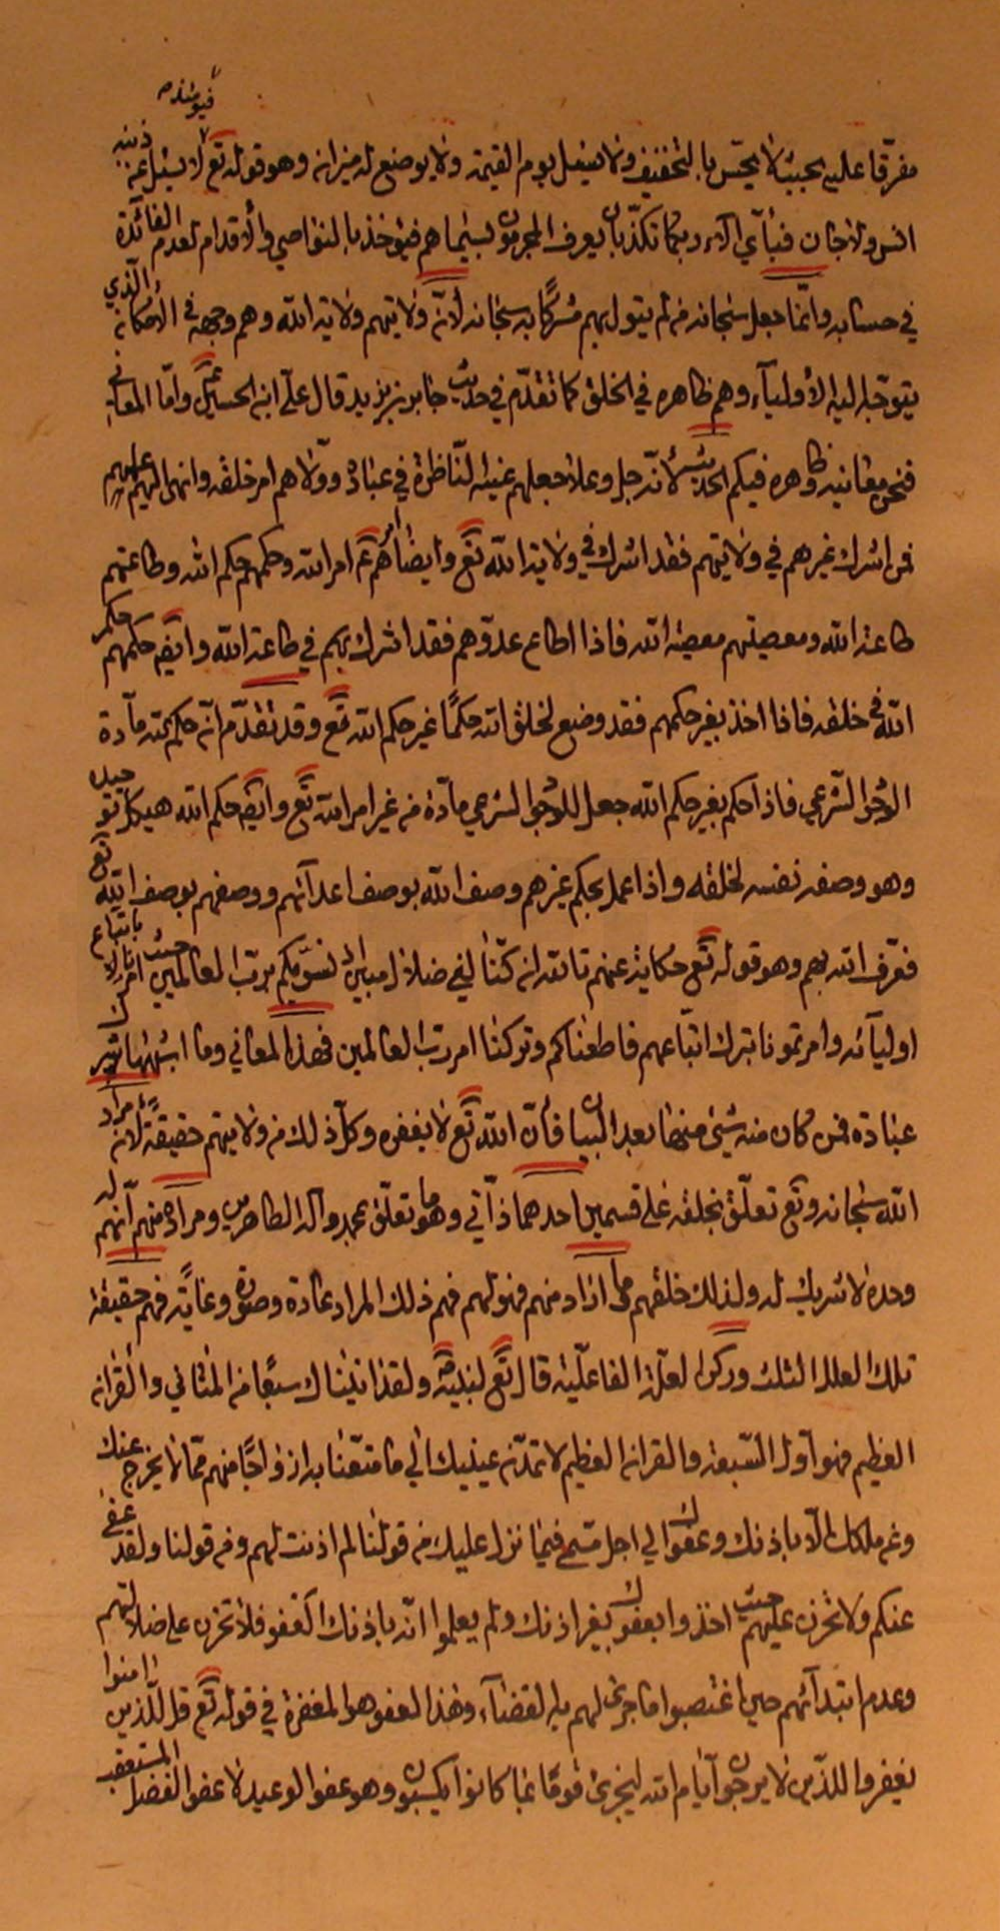 فيومئذ
مفرقا عليه بحيث لا يحس بالتخفيف ولا يسئل يوم القيمة ولا يوضع له ميزان وهو قوله تع لا يسئل عن ذنبه
انس ولا جان فبأي آلاء ربكما تكذبان يعرف المجرمون بسيماهم فيؤخذ بالنواصي والأقدام لعدم الفائدة
في حسابه وانما جعل سبحانه من لم يتول بهم مشركا به سبحانه لأن ولايتهم ولاية الله وهم وجهه في الأمكان الذي
يتوجه اليه الأولياء وهم ظاهره في الخلق كما تقدم في حديث جابر بن يزيد قال علي ابن الحسين ع واما المعاني
فنحن معانيه وظاهره فيكم الحديث لأنه جل وعلا جعلهم عينه الناظرة في عباده وولاهم امر خلقه وانهى اليهم علمهم
فمن اشرك غيرهم في ولايتهم فقد اشرك في ولاية الله تع وايضا أمرهم ع امر الله وحكمهم حكم الله وطاعتهم
طاعة الله ومعصيتهم معصية الله فاذا اطاع عدوهم فقد اشرك بهم في طاعة الله وايضا حكمهم حكم
الله في خلقه فاذا اخذ بغير حكمهم فقد وضع لخلق الله حكما غير حكم الله تع وقد تقدم ان حكمته مآدة
الوجود الشرعي فاذا حكم بغير حكم الله جعل للوجود الشرعي مادة من غير امر الله تع وايضا حكم الله هيكل توحيد
وهو وصفه نفسه لخلقه واذا عمل بحكم غيرهم وصف الله بوصف اعدآئهم ووصفهم بوصف الله تع
فعرف الله بهم وهو قوله تع حكاية عنهم تالله ان كنا لفي ضلال مبين اذ نسويكم برب العالمين حيث امرنا الله باتباع
اوليآئه وامرتمونا بترك اتباعهم فاطعناكم وتركنا امر رب العالمين فهذه المعاني وما اشبهها شرك
عبادة فمن كان منه شئ منها بعد البيان فأن الله تع لا يغفره وكل ذلك من ولايتهم حقيقة لأن مراد
الله سبحانه وتع تعلق بخلقه على قسمين احدهما ذآتي وهو ما تعلق بمحمد وآله الطاهرين ومراده منهم انهم له
وحده لا شريك له ولذلك خلقهم فما اراد منهم فهو لهم فهم ذلك المراد مادة وصورة وغاية فهم حقيقة
تلك العلل الثلث وركن العلة الفاعلية قال تع لنبيه ص ولقد اتيناك سبعا من المثاني والقران
العظيم فهو اول السبعة والقران العظيم لا تمدن عينيك الى ما متعنا به ازواجا منهم مما لا يخرج عنك
وعن ملكك الا باذنك وعفوك الى اجل مسمى فيما نزل عليك من قولنا لم اذنت لهم ومن قولنا ولقد عفى
عنكم ولا تحزن عليهم حيث اخذوا بعفوك بغير اذنك ولم يعلموا انه باذنك كعفو فلا تحزن على ضلالتهم
وعدم ابتدآئهم حين اغتصبوا ما جرى لهم به القضآء وهذا العفو هو المغفرة في قوله تع قل للذين امنوا
يغفروا للذين لا يرجون ايام الله ليجزي قوما بما كانوا يكسبون وهو عفو الوعيد لا عفو الفضل المستعقب